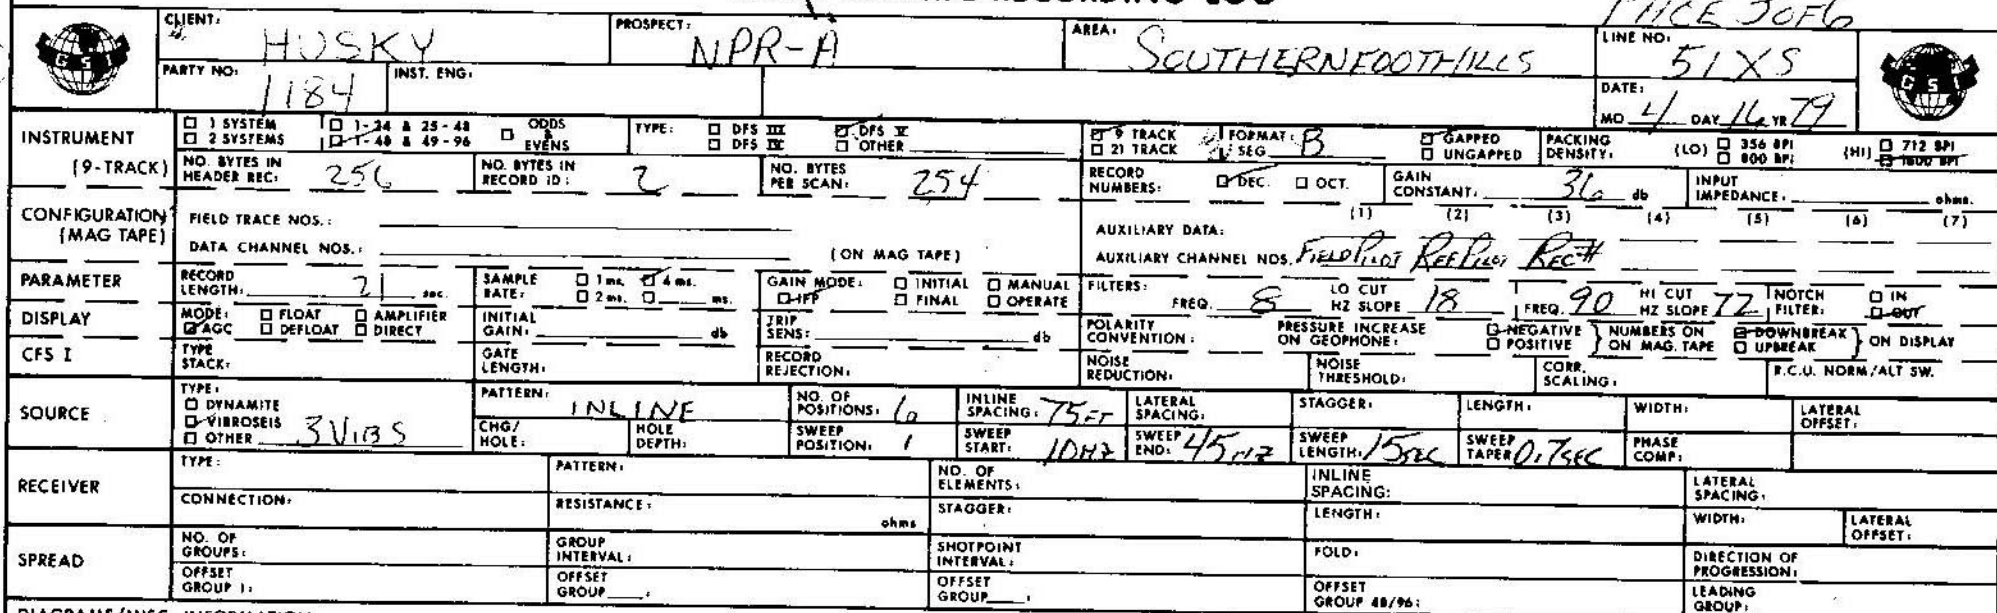 RECORDING LOG
PAGE 3 OF 6
GSI
CLIENT: HUSKY
PROSPECT: NPR-A
AREA: SOUTHERN FOOTHILLS
LINE NO: 51XS
GSI
PARTY NO: 1184
INST. ENG:
DATE: MO 4 DAY 16 YR 79
INSTRUMENT
(9-TRACK)
□ 1 SYSTEM □ 1-24 & 25-48 □ ODDS & EVENS
□ 2 SYSTEMS □ 1-48 & 49-96
TYPE: □ DFS III □ DFS V
□ DFS IV □ OTHER
□ 9 TRACK FORMAT: B □ GAPPED
□ 21 TRACK SEG □ UNGAPPED
PACKING DENSITY: (LO) □ 356 BPI (HI) □ 712 BPI
□ 800 BPI □ 1600 BPI
NO. BYTES IN HEADER REC: 256
NO. BYTES IN RECORD ID: 2
NO. BYTES PER SCAN: 254
RECORD NUMBERS: □ DEC. □ OCT.
GAIN CONSTANT: 36 db
INPUT IMPEDANCE: ohms.
CONFIGURATION
(MAG TAPE)
FIELD TRACE NOS.:
DATA CHANNEL NOS.: (ON MAG TAPE)
(1) (2) (3) (4) (5) (6) (7)
AUXILIARY DATA:
AUXILIARY CHANNEL NOS. FIELD PILOT REF PILOT REC#
PARAMETER
RECORD LENGTH: 21 sec.
SAMPLE RATE: □ 1 ms. □ 4 ms.
□ 2 ms. □ ms.
GAIN MODE: □ INITIAL □ MANUAL
□ IFP □ FINAL □ OPERATE
FILTERS: FREQ. 8 LO CUT HZ SLOPE 18 FREQ. 90 HI CUT HZ SLOPE 72
NOTCH FILTER: □ IN
□ OUT
DISPLAY
MODE: □ FLOAT □ AMPLIFIER
□ AGC □ DEFLOAT □ DIRECT
INITIAL GAIN: db
TRIP SENS: db
POLARITY CONVENTION: PRESSURE INCREASE ON GEOPHONE: □ NEGATIVE □ POSITIVE } NUMBERS ON MAG. TAPE □ DOWNBREAK □ UPBREAK } ON DISPLAY
CFS I
TYPE STACK:
GATE LENGTH:
RECORD REJECTION:
NOISE REDUCTION:
NOISE THRESHOLD:
CORR. SCALING:
R.C.U. NORM/ALT SW.
SOURCE
TYPE:
□ DYNAMITE
□ VIBROSEIS
□ OTHER 3 VIBS
PATTERN: INLINE
NO. OF POSITIONS: 6
INLINE SPACING: 75 FT
LATERAL SPACING:
STAGGER:
LENGTH:
WIDTH:
LATERAL OFFSET:
CHG/HOLE:
HOLE DEPTH:
SWEEP POSITION: 1
SWEEP START: 10HZ
SWEEP END: 45HZ
SWEEP LENGTH: 15SEC
SWEEP TAPER 0.7SEC
PHASE COMP:
RECEIVER
TYPE:
PATTERN:
NO. OF ELEMENTS:
INLINE SPACING:
LATERAL SPACING:
CONNECTION:
RESISTANCE: ohms
STAGGER:
LENGTH:
WIDTH:
LATERAL OFFSET:
SPREAD
NO. OF GROUPS:
GROUP INTERVAL:
SHOTPOINT INTERVAL:
FOLD:
DIRECTION OF PROGRESSION:
OFFSET GROUP 1:
OFFSET GROUP ____:
OFFSET GROUP ____:
OFFSET GROUP 48/96:
LEADING GROUP:
DIAGRAMS/MISC. INFORMATION